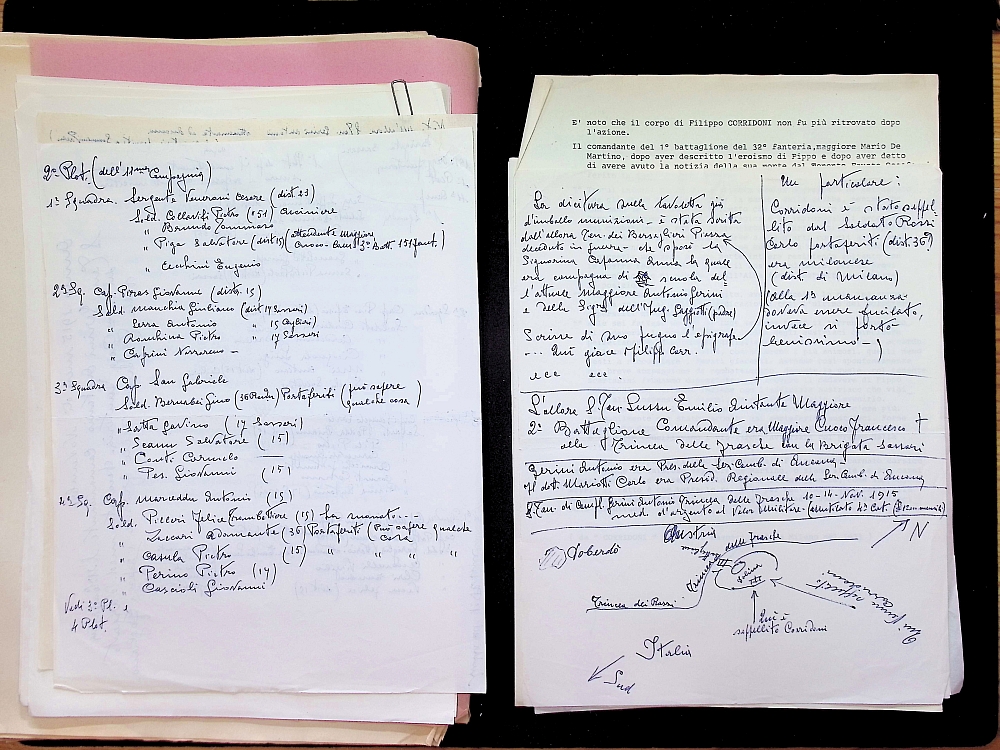 2º Plot. (dell'11ma Compagnia)
1ª Squadra. Sergente Venerani Cesare (dist. 23)
Sold. Collavifi Pietro (051) Cuciniere
" Brundu Tommaso
" Piga Salvatore (dist 15) (attendente Maggiore
Cuoco - Com. 3º Batt. 151 fant.)
" Cecchini Eugenio
2ª Sq. Cap. Piras Giovanni (dist. 15)
Sold. Manchia Giuliano (dist 14 Sassari)
" Serra Antonio " 15 Cagliari)
" Pietro " 14 Sassari
" Caprini Nazzareno -
3ª Squadra Cap. San Gabriele
Sold. Bernabei Gino (36 ) Portaferiti (può sapere
qualche cosa)
" Satta Gavino (14 Sassari)
" Scanu Salvatore (15)
" Conti Carmelo
" Pes. Giovanni (15)
4ª Sq. Cap. Marceddu Antonio (15)
Sold. Piccori Felice Trombettiere (15) ha
" Zuccari Adamante (36) Portaferiti (può sapere qualche
cosa
" Casula Pietro (15) " " "
" Perino Pietro (14)
" Cascioli Giovanni
Vedi 3º Pl.
4 Plot.
E' noto che il corpo di Filippo CORRIDONI non fu più ritrovato dopo
l'azione.
Il comandante del 1° battaglione del 32° Fanteria,maggiore Mario De
Martino, dopo aver descritto l'eroismo di Pippo e dopo aver detto
di avere avuto la notizia della sua morte dal
La dicitura sulla tavoletta già
d'imballo munizioni - è stata scritta
dall'allora Ten. dei Bersaglieri Piazza
deceduto in guerra - che sposò la
Signorina Capanna Annia la quale
era compagna di scuola del
l'attuale Maggiore Antonio Gerini
e della Sigra dell'Ing. (padre)
Scrisse di suo pugno l'epigrafe
... Qui giace Filippo Corr.
ecc ecc.
Un particolare:
Corridoni è stato seppel-
lito dal Soldato Rossi
Carlo portaferiti (dist. 36ª)
era milanese
(dist. di Milano)
(alla 1ª mancanza
doveva essere fucilato,
invece si portò
benissimo -)
L'allora S. Ten. Lussu Emilio Aiutante Maggiore
2º Battaglione Comandante era Maggiore Cuoco Francesco †
alla Trincea delle Frasche con la Brigata Sassari
Gerini Antonio era Pres. della Sez. Comb. di Ancona -
Il dott. Mariotti Carlo era Presid. Regionale delle Sez. Comb. di Ancona
S. Ten. di Compl. Gerini Antonio Trincea delle Frasche 10 - 14 - Nov. 1915
med. d'argento al Valor Militare - (mutilato 4ª Cat.
N
Austria
Doberdò
Trincea delle Frasche
Trincea dei Razzi
Qui è
seppellito Corridoni
Qui fu seppellito
Corridoni
Italia
Sud